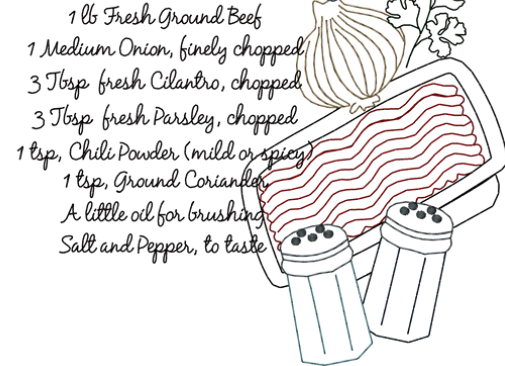 1 lb Fresh Ground Beef
1 Medium Onion, finely chopped
3 Tbsp fresh Cilantro, chopped
3 Tbsp fresh Parsley, chopped
1 tsp, Chili Powder (mild or spicy)
1 tsp, Ground Coriander
A little oil for brushing
Salt and Pepper, to taste